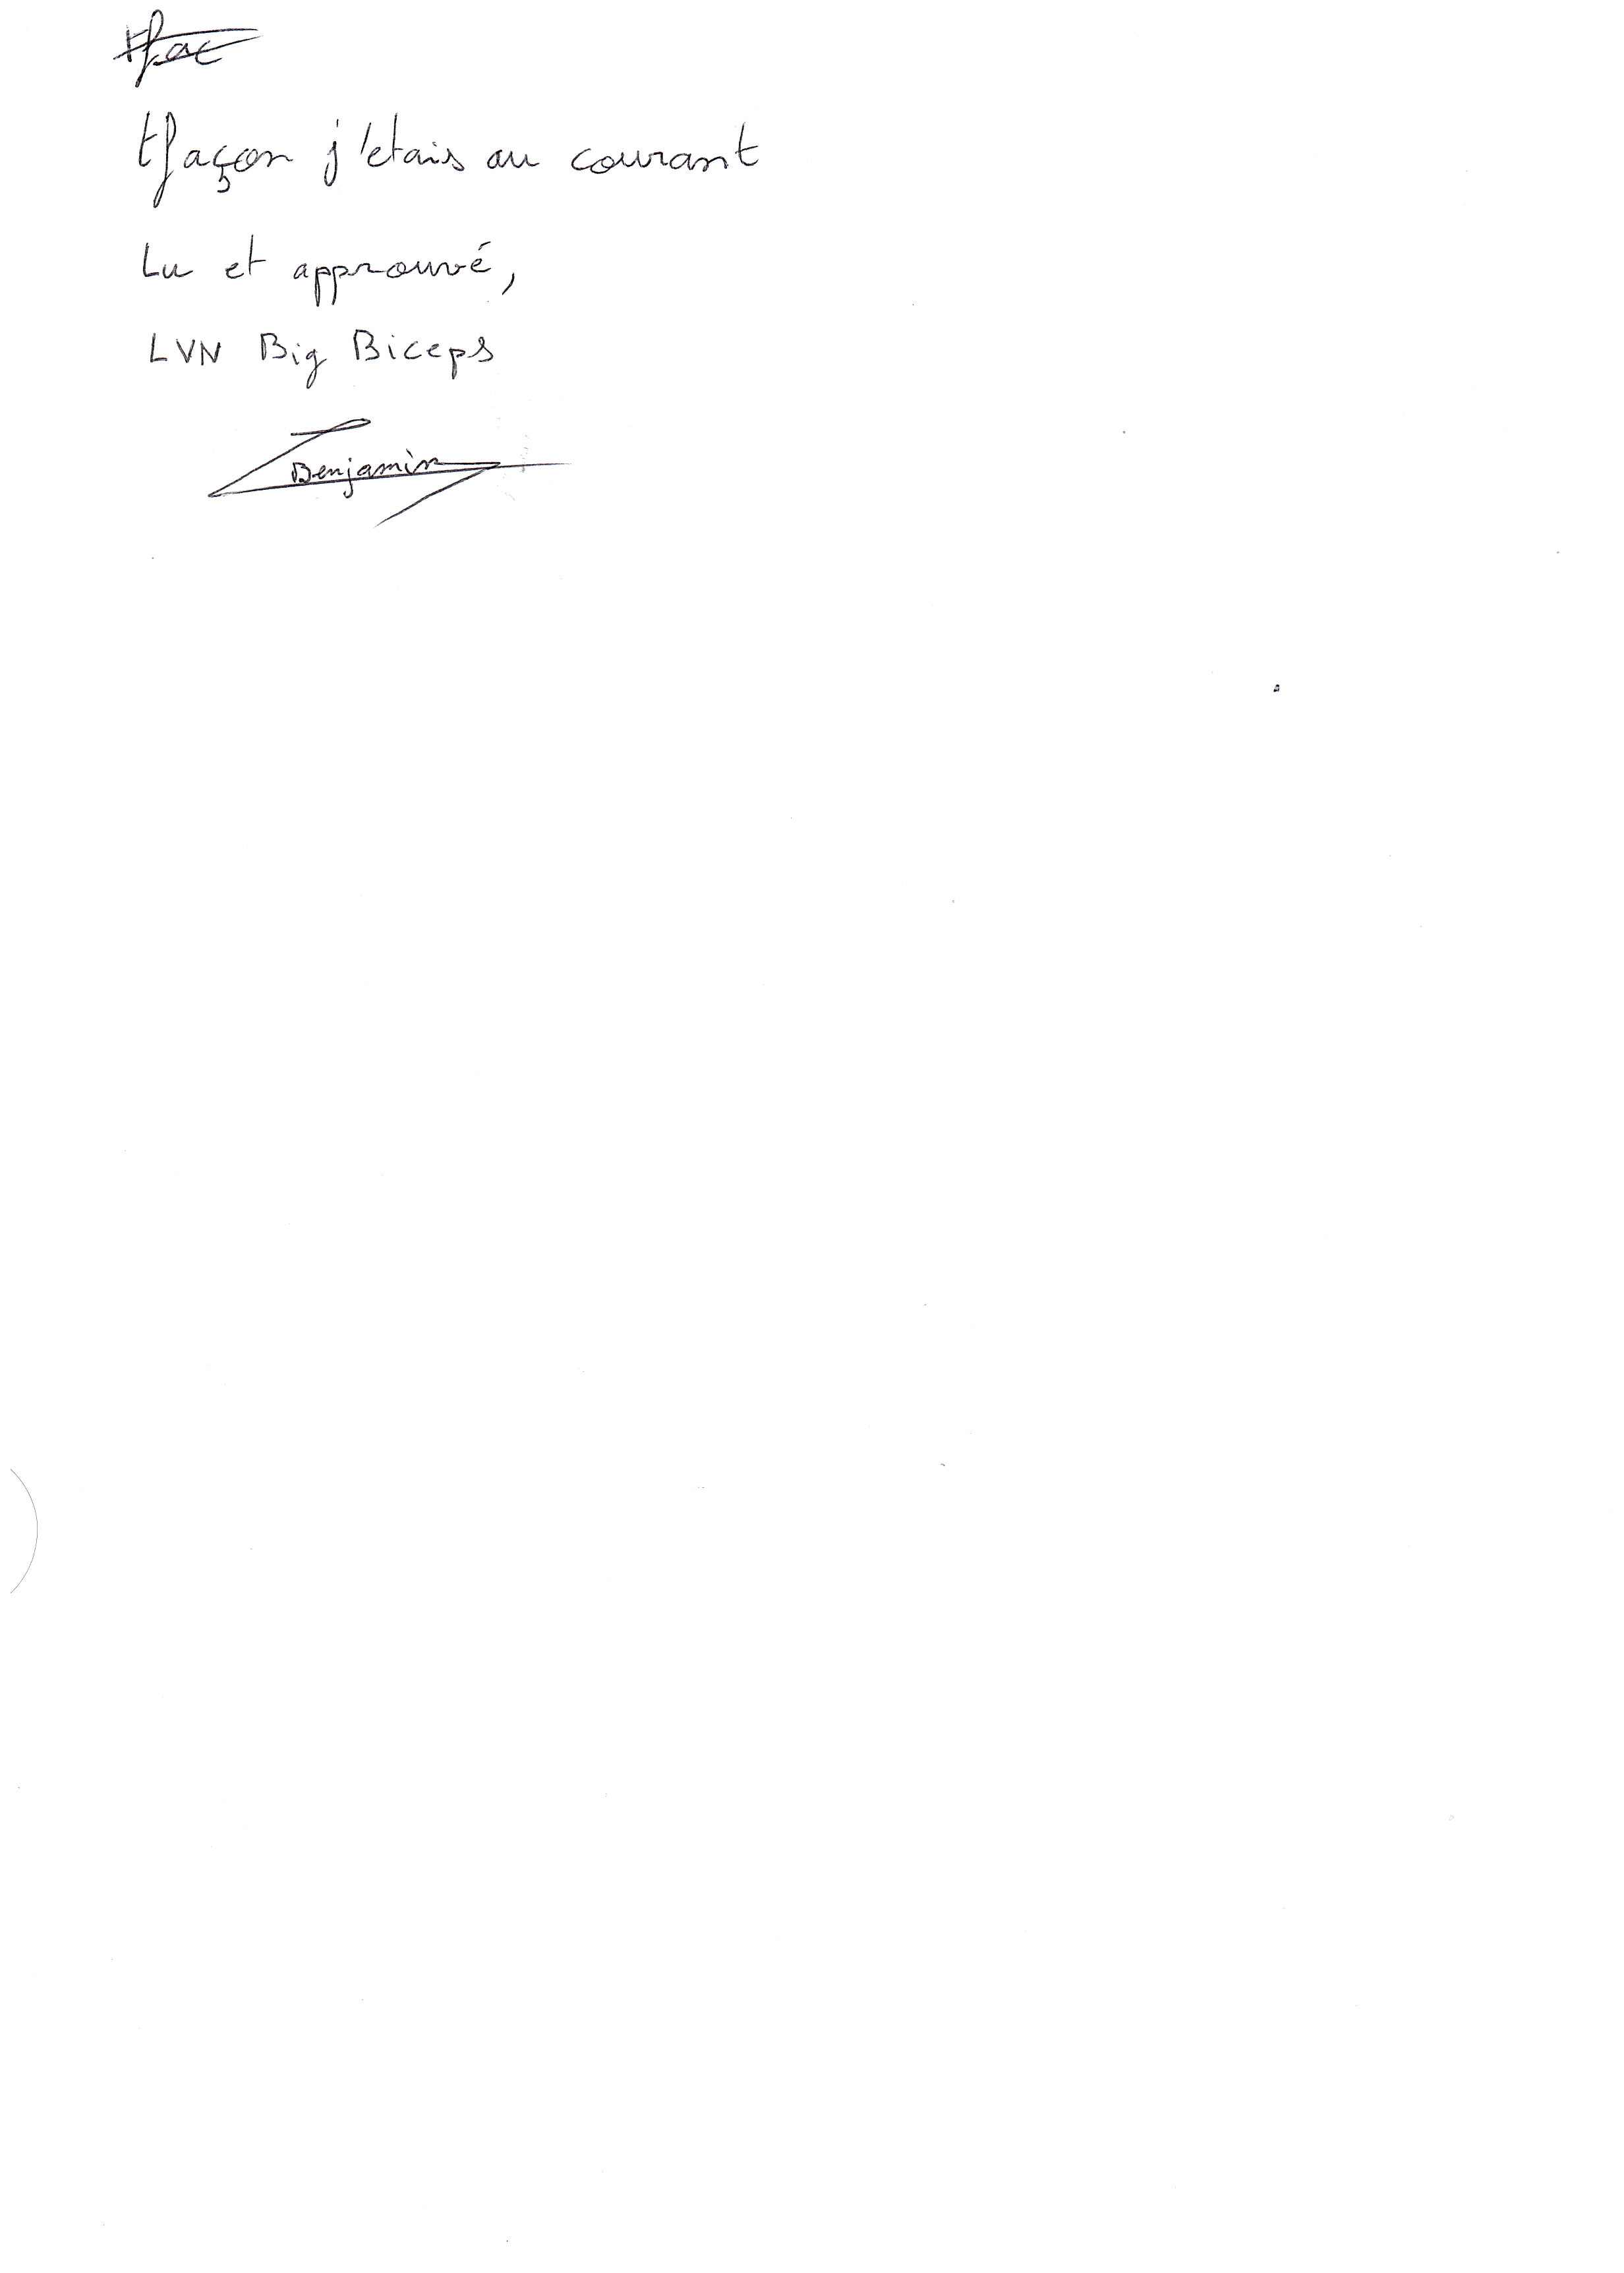 tfaçon j'etais au courant
Lu et approuvé,
LVN Big Biceps
Benjamin